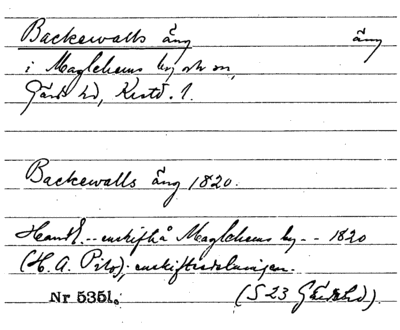 Backewalls äng äng
i Maglehems by och sn,
Gärds hd, Krstd. l.
Backewalls äng 1820.
Handl. -- enskifte å Maglehems by -- 1820
(H. A. Pihl); enskiftesdelningen.
Nr 5351. (S 23 Gärds hd).